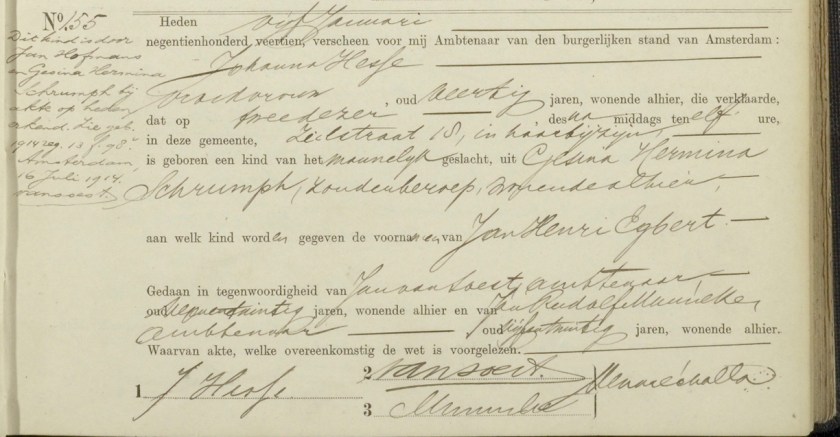 No. 155
Dit kind is door
Jan Hofmans
en Gesina Hermina
Schrumph bij
akte op heden
erkend. Zie geb.
1914 reg. 18 f. 98
Amsterdam,
16 Juli 1914.
van Soest.
Heden vijf Januari
negentienhonderd veertien, verscheen voor mij Ambtenaar van den burgerlijken stand van Amsterdam:
Johanna Hesse
vroedvrouw, oud veertig jaren, wonende alhier, die verklaarde,
dat op tweedezer, des na middags ten elf ure,
in deze gemeente, Zeilstraat 18, in haar bijzijn,
is geboren een kind van het mannelijk geslacht, uit Gesina Hermina
Schrumph, zonder beroep, wonende alhier,
aan welk kind worden gegeven de voornamen van Jan Henri Egbert.
Gedaan in tegenwoordigheid van Jan van Soest, ambtenaar
oud jaren, wonende alhier en van Jan Rudolf Munneke,
ambtenaar oud vijfentwintig jaren, wonende alhier.
Waarvan akte, welke overeenkomstig de wet is voorgelezen.
1 J Hesse.
2 van Soest.
3 Munneke